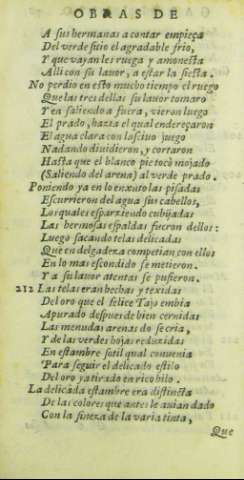 OBRAS DE
A sus hermanas a contar empieça
Del verde sitio el agradable frio,
Y que vayan les ruega y amonesta
Alli con su lauor, a estar la siesta.
No perdio en esto mucho tiempo el ruego
Que las tres dellas su lauor tomarō
Y en saliendo a fuera, vieron luego
El prado, hazia el qual endereçaron
El agua clara con lasciuo juego
Nadando diuidieron, y cortaron
Hasta que el blanco pie tocò mojado
(Saliendo del arena) al verde prado.
Poniendo ya en lo enxuto las pisadas
Escurrieron del agua sus cabellos,
Los quales esparziendo cubijadas
Las hermosas espaldas fueron dellos:
Luego sacando telas delicadas
Que en delgadeza competian con ellos
En lo mas escondido se metieron.
Y a su lauor atentas se pusieron.
212 Las telas eran hechas y texidas
Del oro que el felice Tajo embia
Apurado despues de bien cernidas
Las menudas arenas do se cria,
Y de las verdes hojas reduzidas
En estambre sotil qual conuenia
Para seguir el delicado estilo
Del oro ya tirado en rico hilo.
La delicada estambre era distincta
De las colores que antes le auian dado
Con la fineza de la varia tinta,
Que